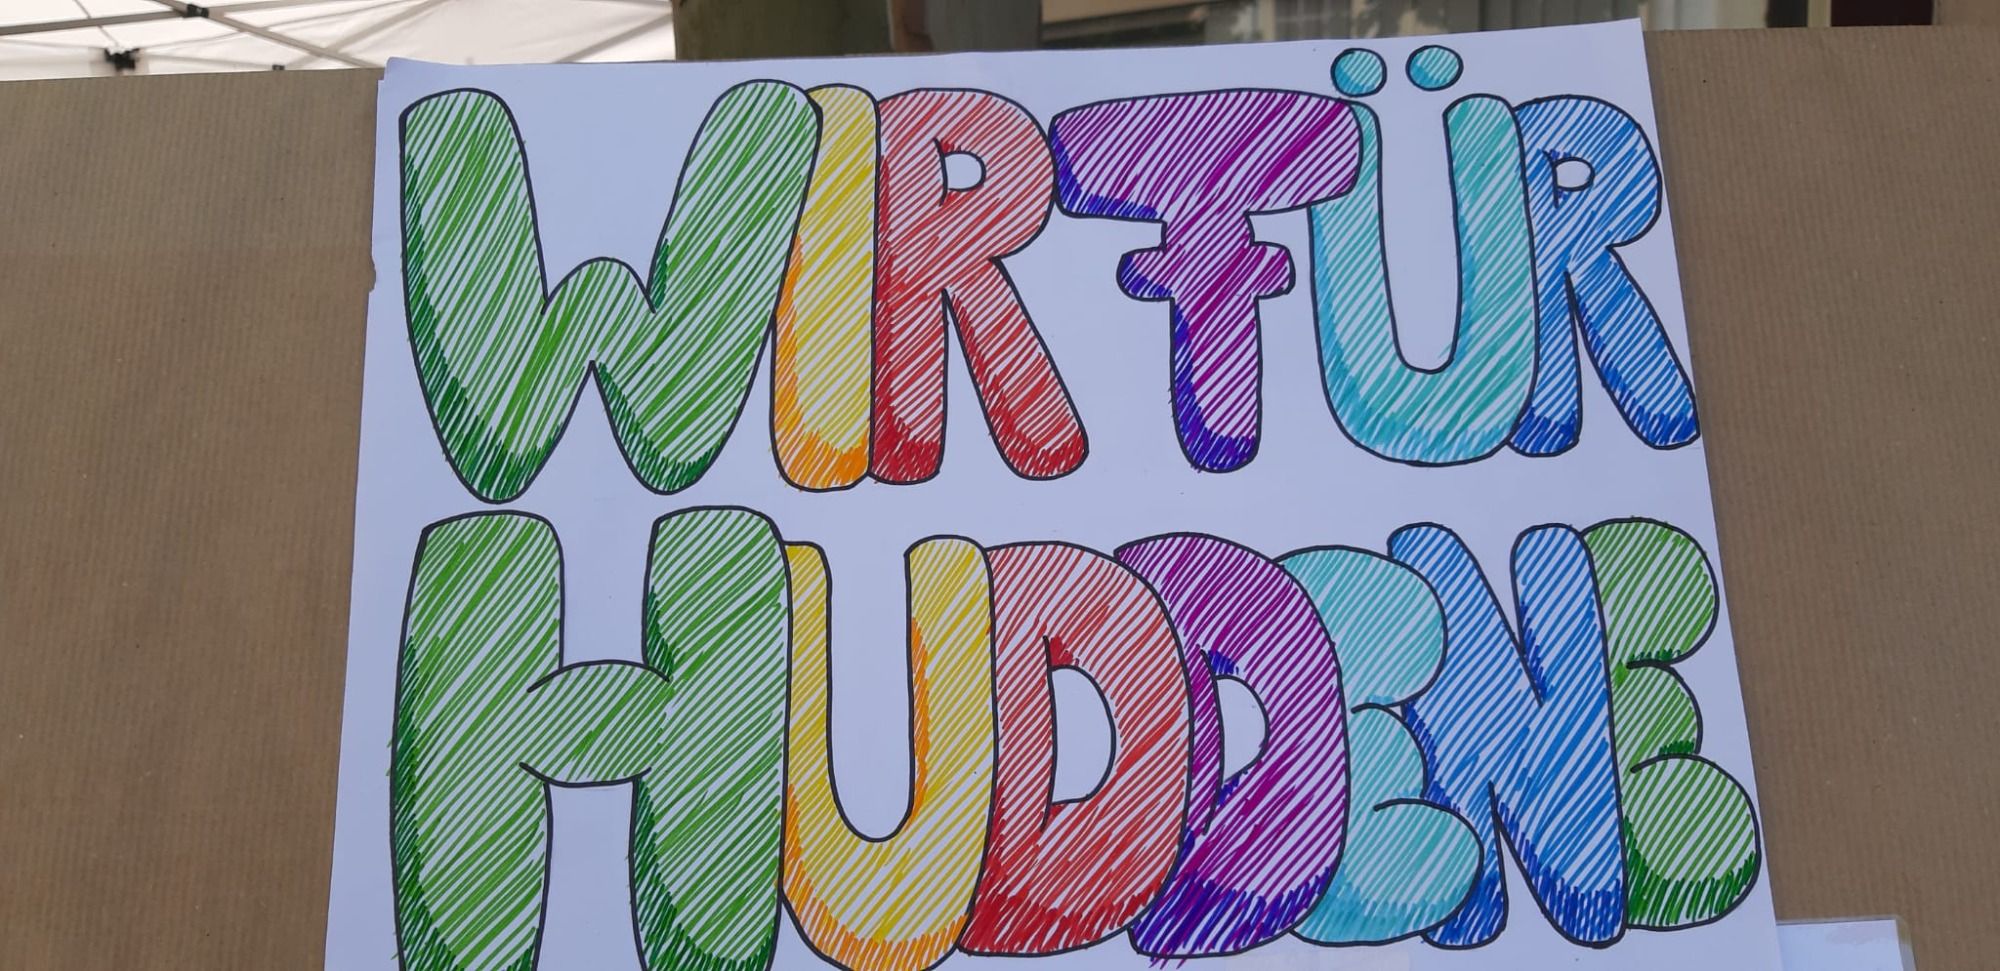 WIR FÜR
HUDDENE